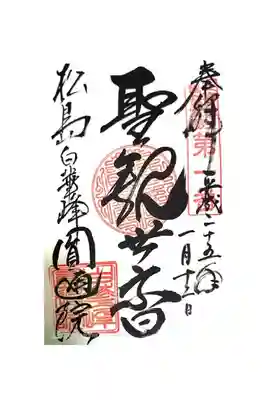 奉拝 平成二十五年
一月十三日
聖観世音
松島白華峰圓通院